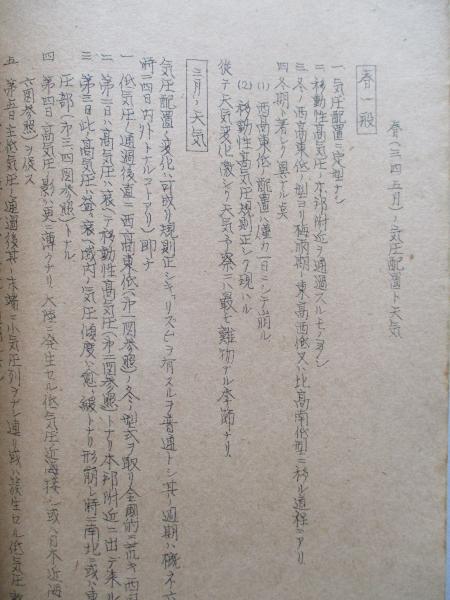 春(三四五月)ノ気圧配置ト天気
春一般
一 気圧配置ニ定型ナシ
二 移動性高気圧ノ本邦附近ヲ通過スルモノ多シ
三 冬ノ西高東低ノ型ヨリ梅雨期ノ東高西低又ハ北高南低型ニ移ル過程ニアリ
四 冬期ト著シク異ナル点
(1) 西高東低ノ配置ハ僅カ一日ニシテ崩ル
(2) 移動性高気圧規則正シク現ハル
従テ天気変化激シク天気予察ニハ最モ難物ナル季節ナリ
三月ノ天気
気圧配置ノ変化ハ可成リ規則正シキリズムヲ有スルヲ普通トシ其ノ週期ハ概ネ六
時ニ四日内外トナルコトアリ)即チ
一 低気圧ノ通過後直ニ西高東低(第一図参照)ノ冬ノ型式ヲ取リ全国的ニ荒キ西
二 第二日ハ高気圧ハ衰ヘテ移動性高気圧(第二図参照)トナリ本邦附近ニ出デ来ル
三 第三日此ノ高気圧ハ益々衰ヘ域内ノ気圧傾度ハ愈々緩トナリ形崩レ時ニ南北ニ或ハ東
圧部(第三四図参照)トナル
四 第四日高気圧ノ影ハ更ニ薄クナリ 大陸ニ発生セル低気圧近海接シ或ハ日本近海
六図参照)ヲ俟ス
五 第五日主低気圧ノ通過後其ノ末端ニ小気圧列ヲナシ連リ或ハ簇生セル低気圧